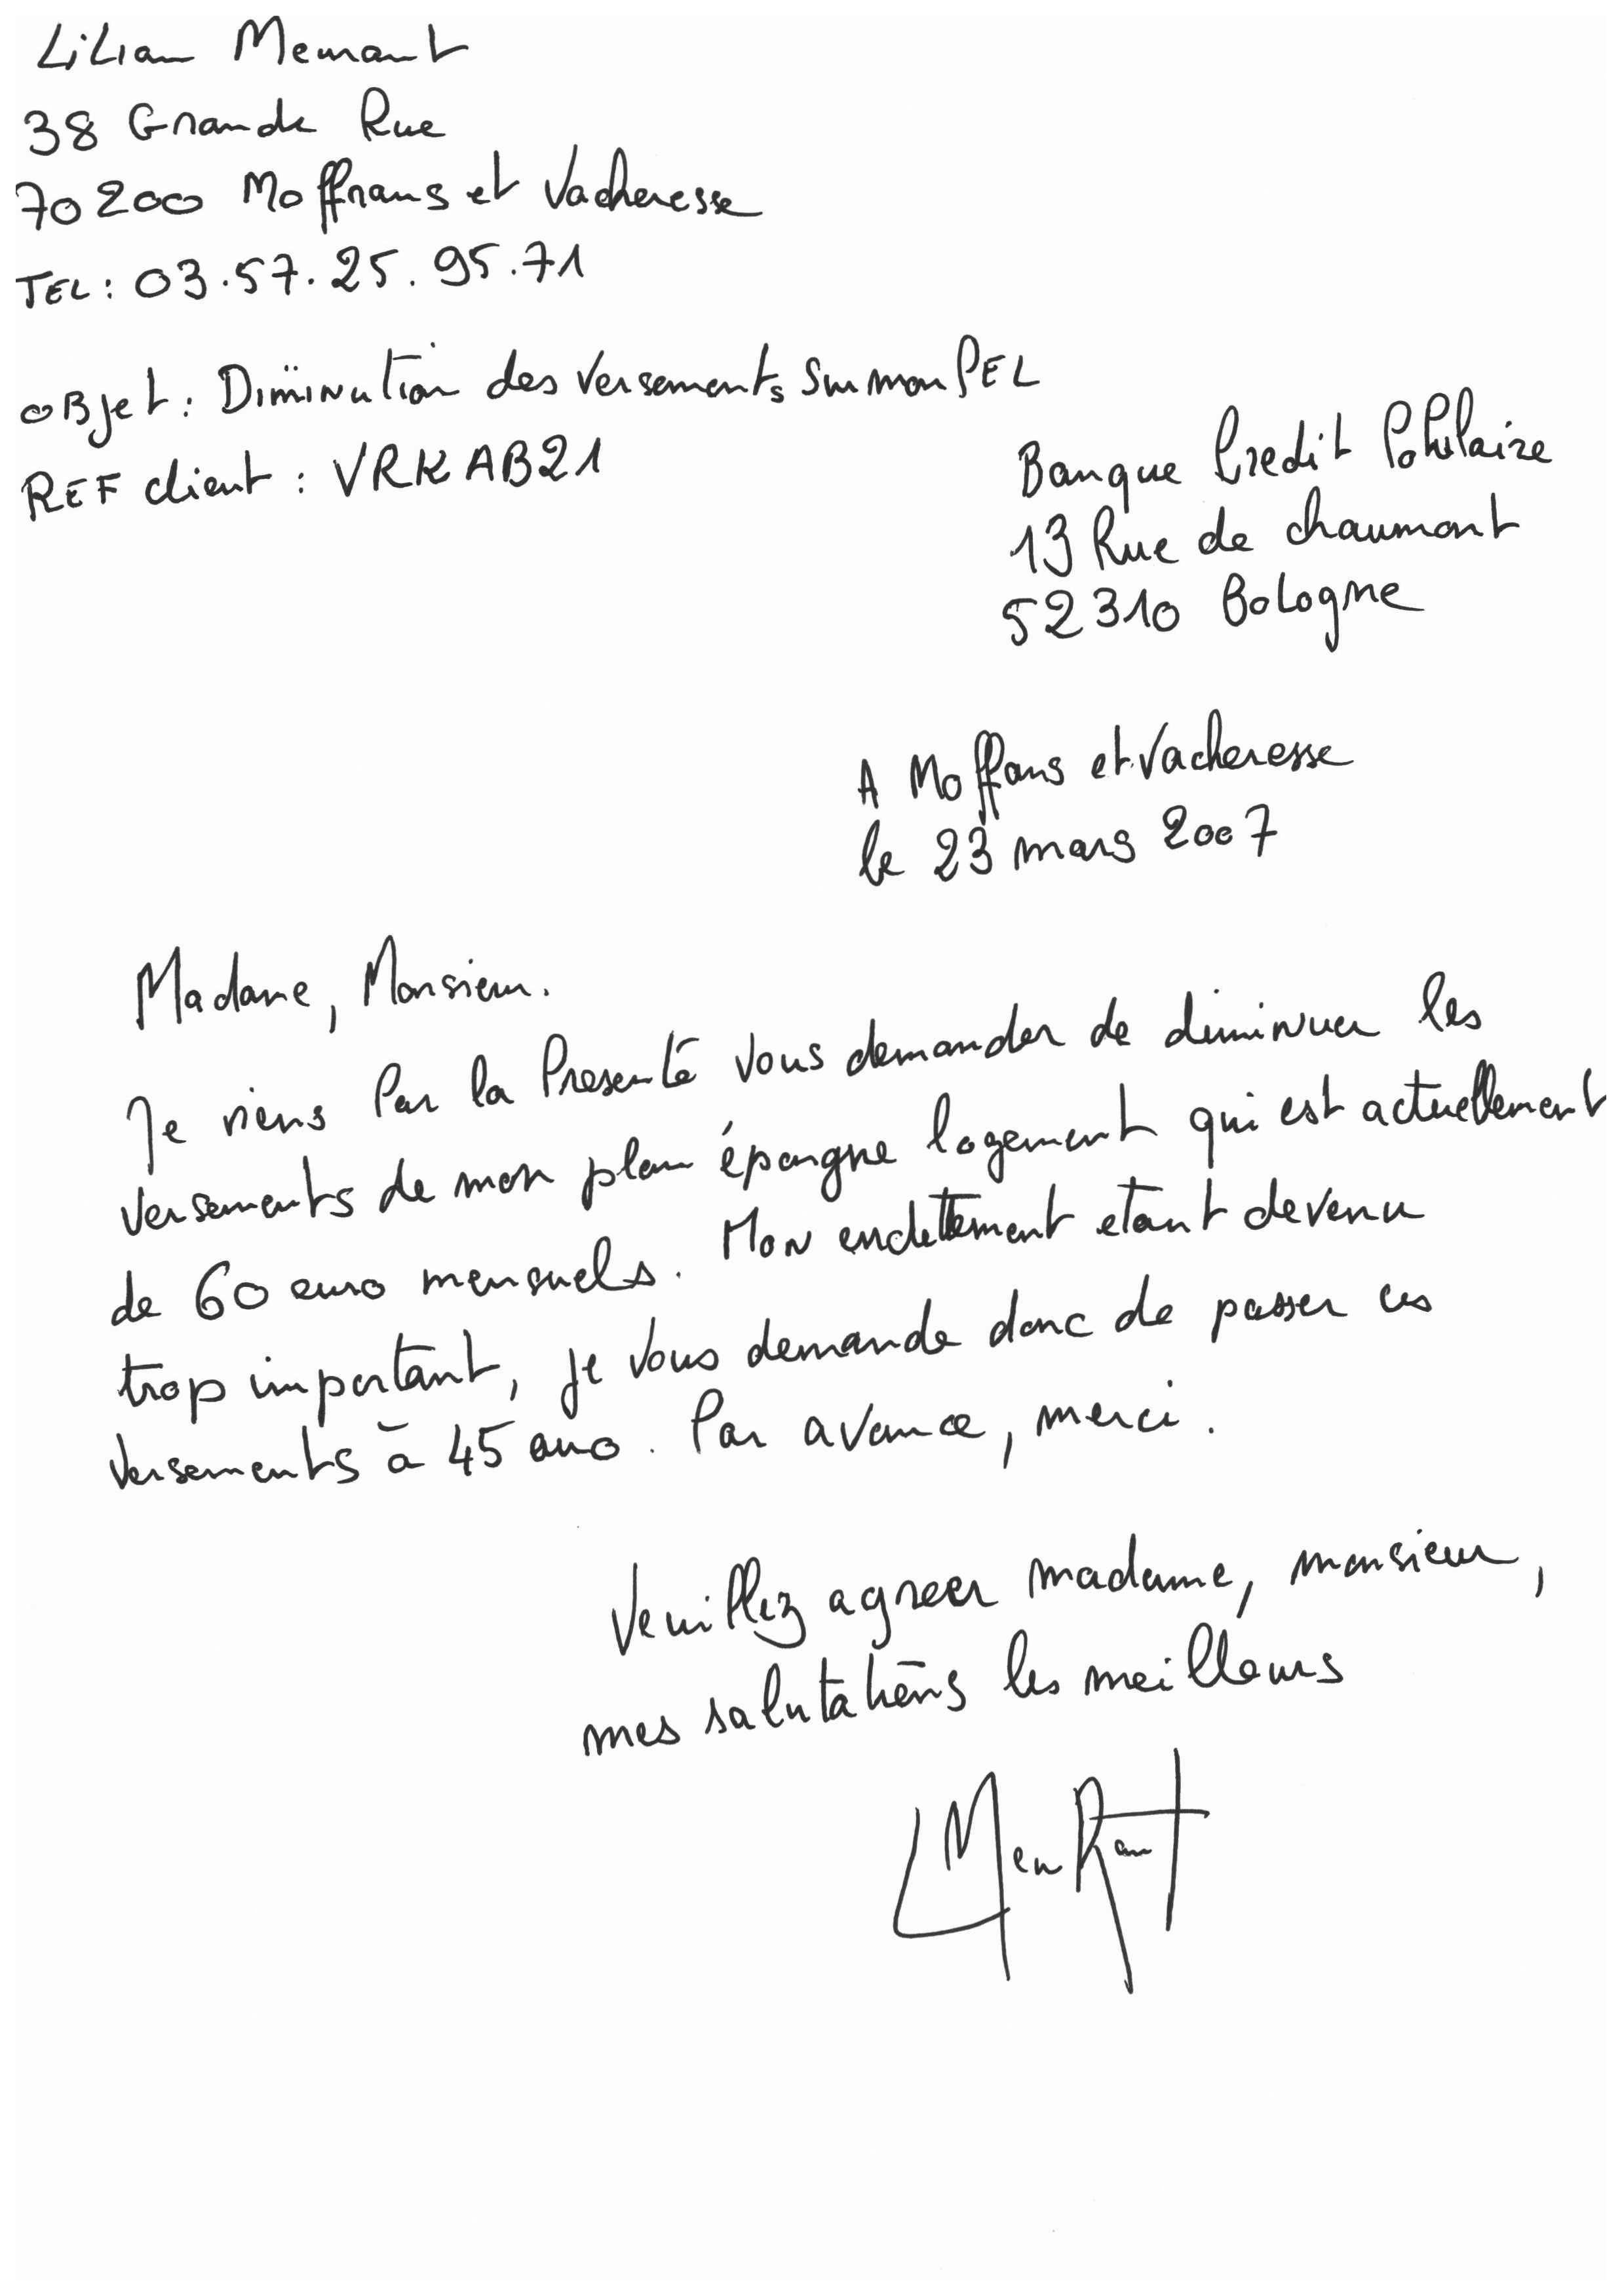 Lilian Menrant
38 Grande Rue
70200 Moffrans et Vacheresse
TEL : 03.57.25.95.71
OBjet : Diminution des versements sur mon PEL
REF client : VRKAB21
Banque Credit Populaire
13 Rue de chaumont
52310 Bologne
A Moffans et Vacheresse
le 23 mars 2007
Madame, Monsieur.
Je viens Par la Presenté vous demander de diminuer les
versements de mon plan épargne logement qui est actuellement
de 60 euro mensuels. Mon endettement etant devenu
trop important, je vous demande donc de passer ces
versements à 45 euro. Par avance, merci.
Veuillez agreer madame, monsieur,
mes salutations les meilleurs
LMenRant